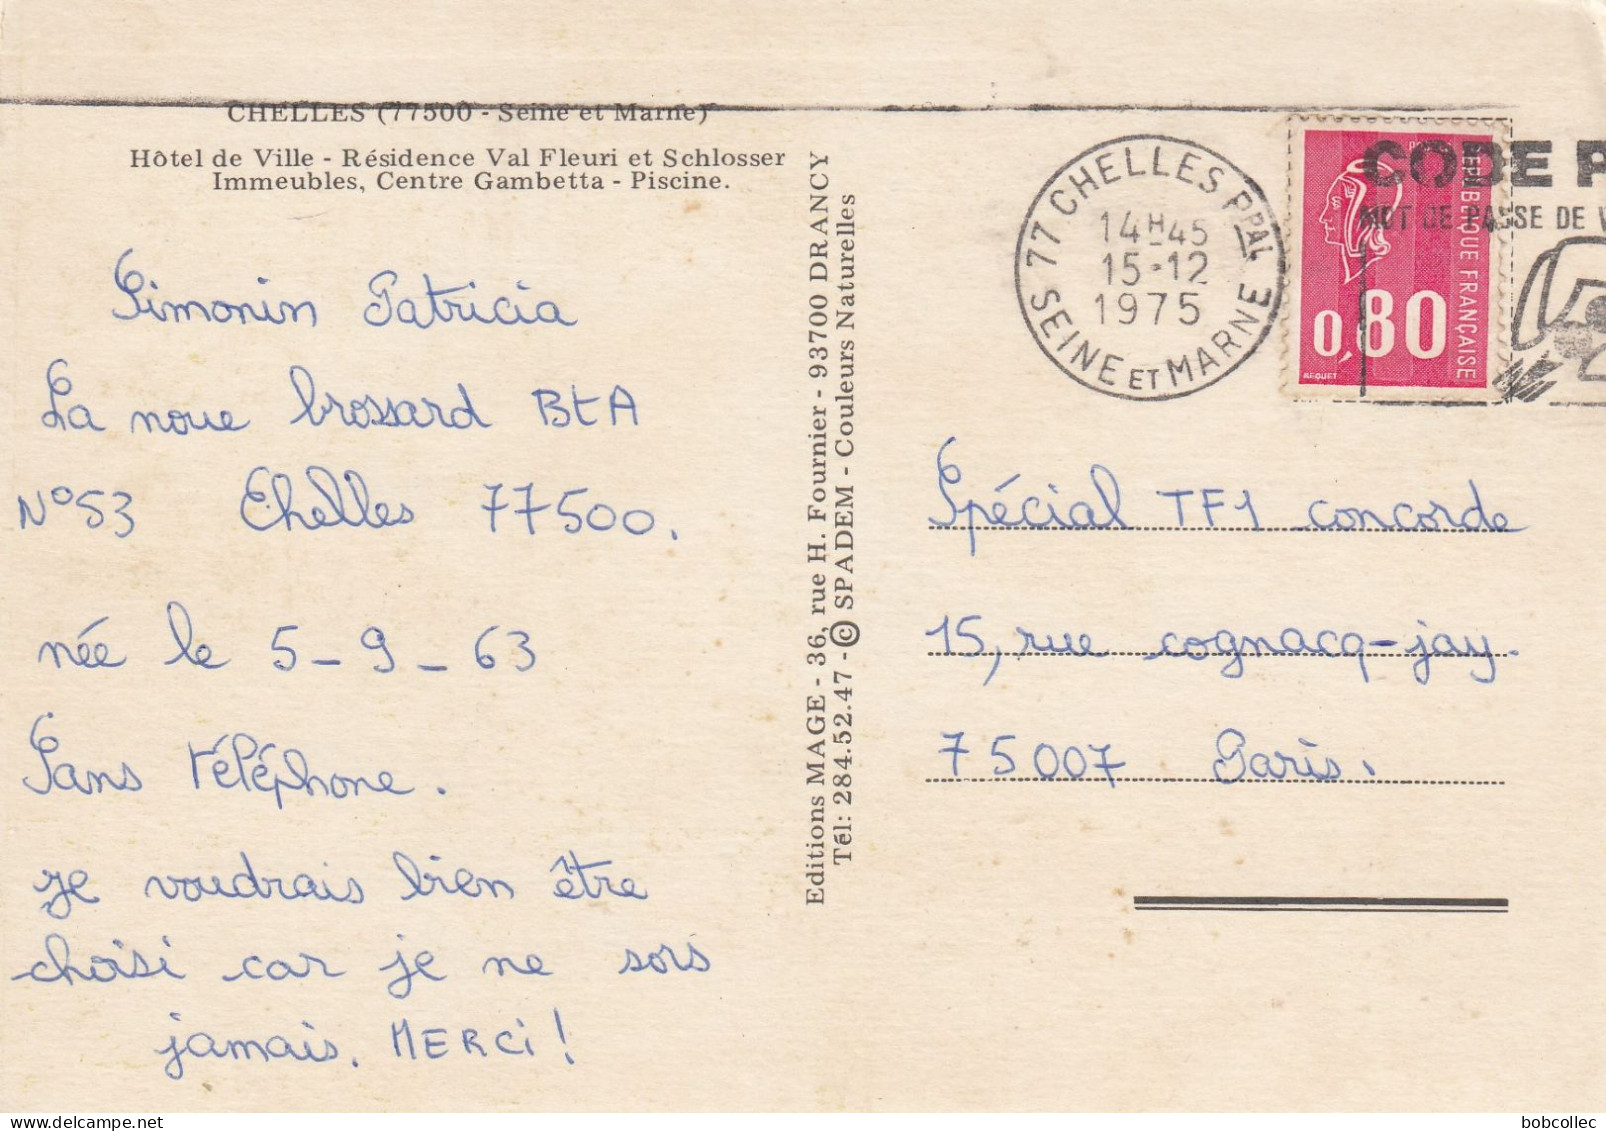 CHELLES (77500 - Seine et Marne)
Hôtel de Ville - Résidence Val Fleuri et Schlosser
Immeubles, Centre Gambetta - Piscine.
Simonin Patricia
La noue brossard Bt A
N°53 Chelles 77500.
née le 5-9-63
Sans téléphone.
je voudrais bien être
choisi car je ne sors
jamais. MERCi !
Editions MAGE - 36, rue H. Fournier - 93700 DRANCY
Tél: 284.52.47 - © SPADEM - Couleurs Naturelles
77 CHELLES PPAL
14H45
15-12
1975
SEINE ET MARNE
REPUBLIQUE FRANÇAISE
0,80
BEQUET
CODE P
MOT DE PASSE DE V
Spécial TF1 concorde
15, rue cognacq-jay.
75007 Paris.
bobcollec